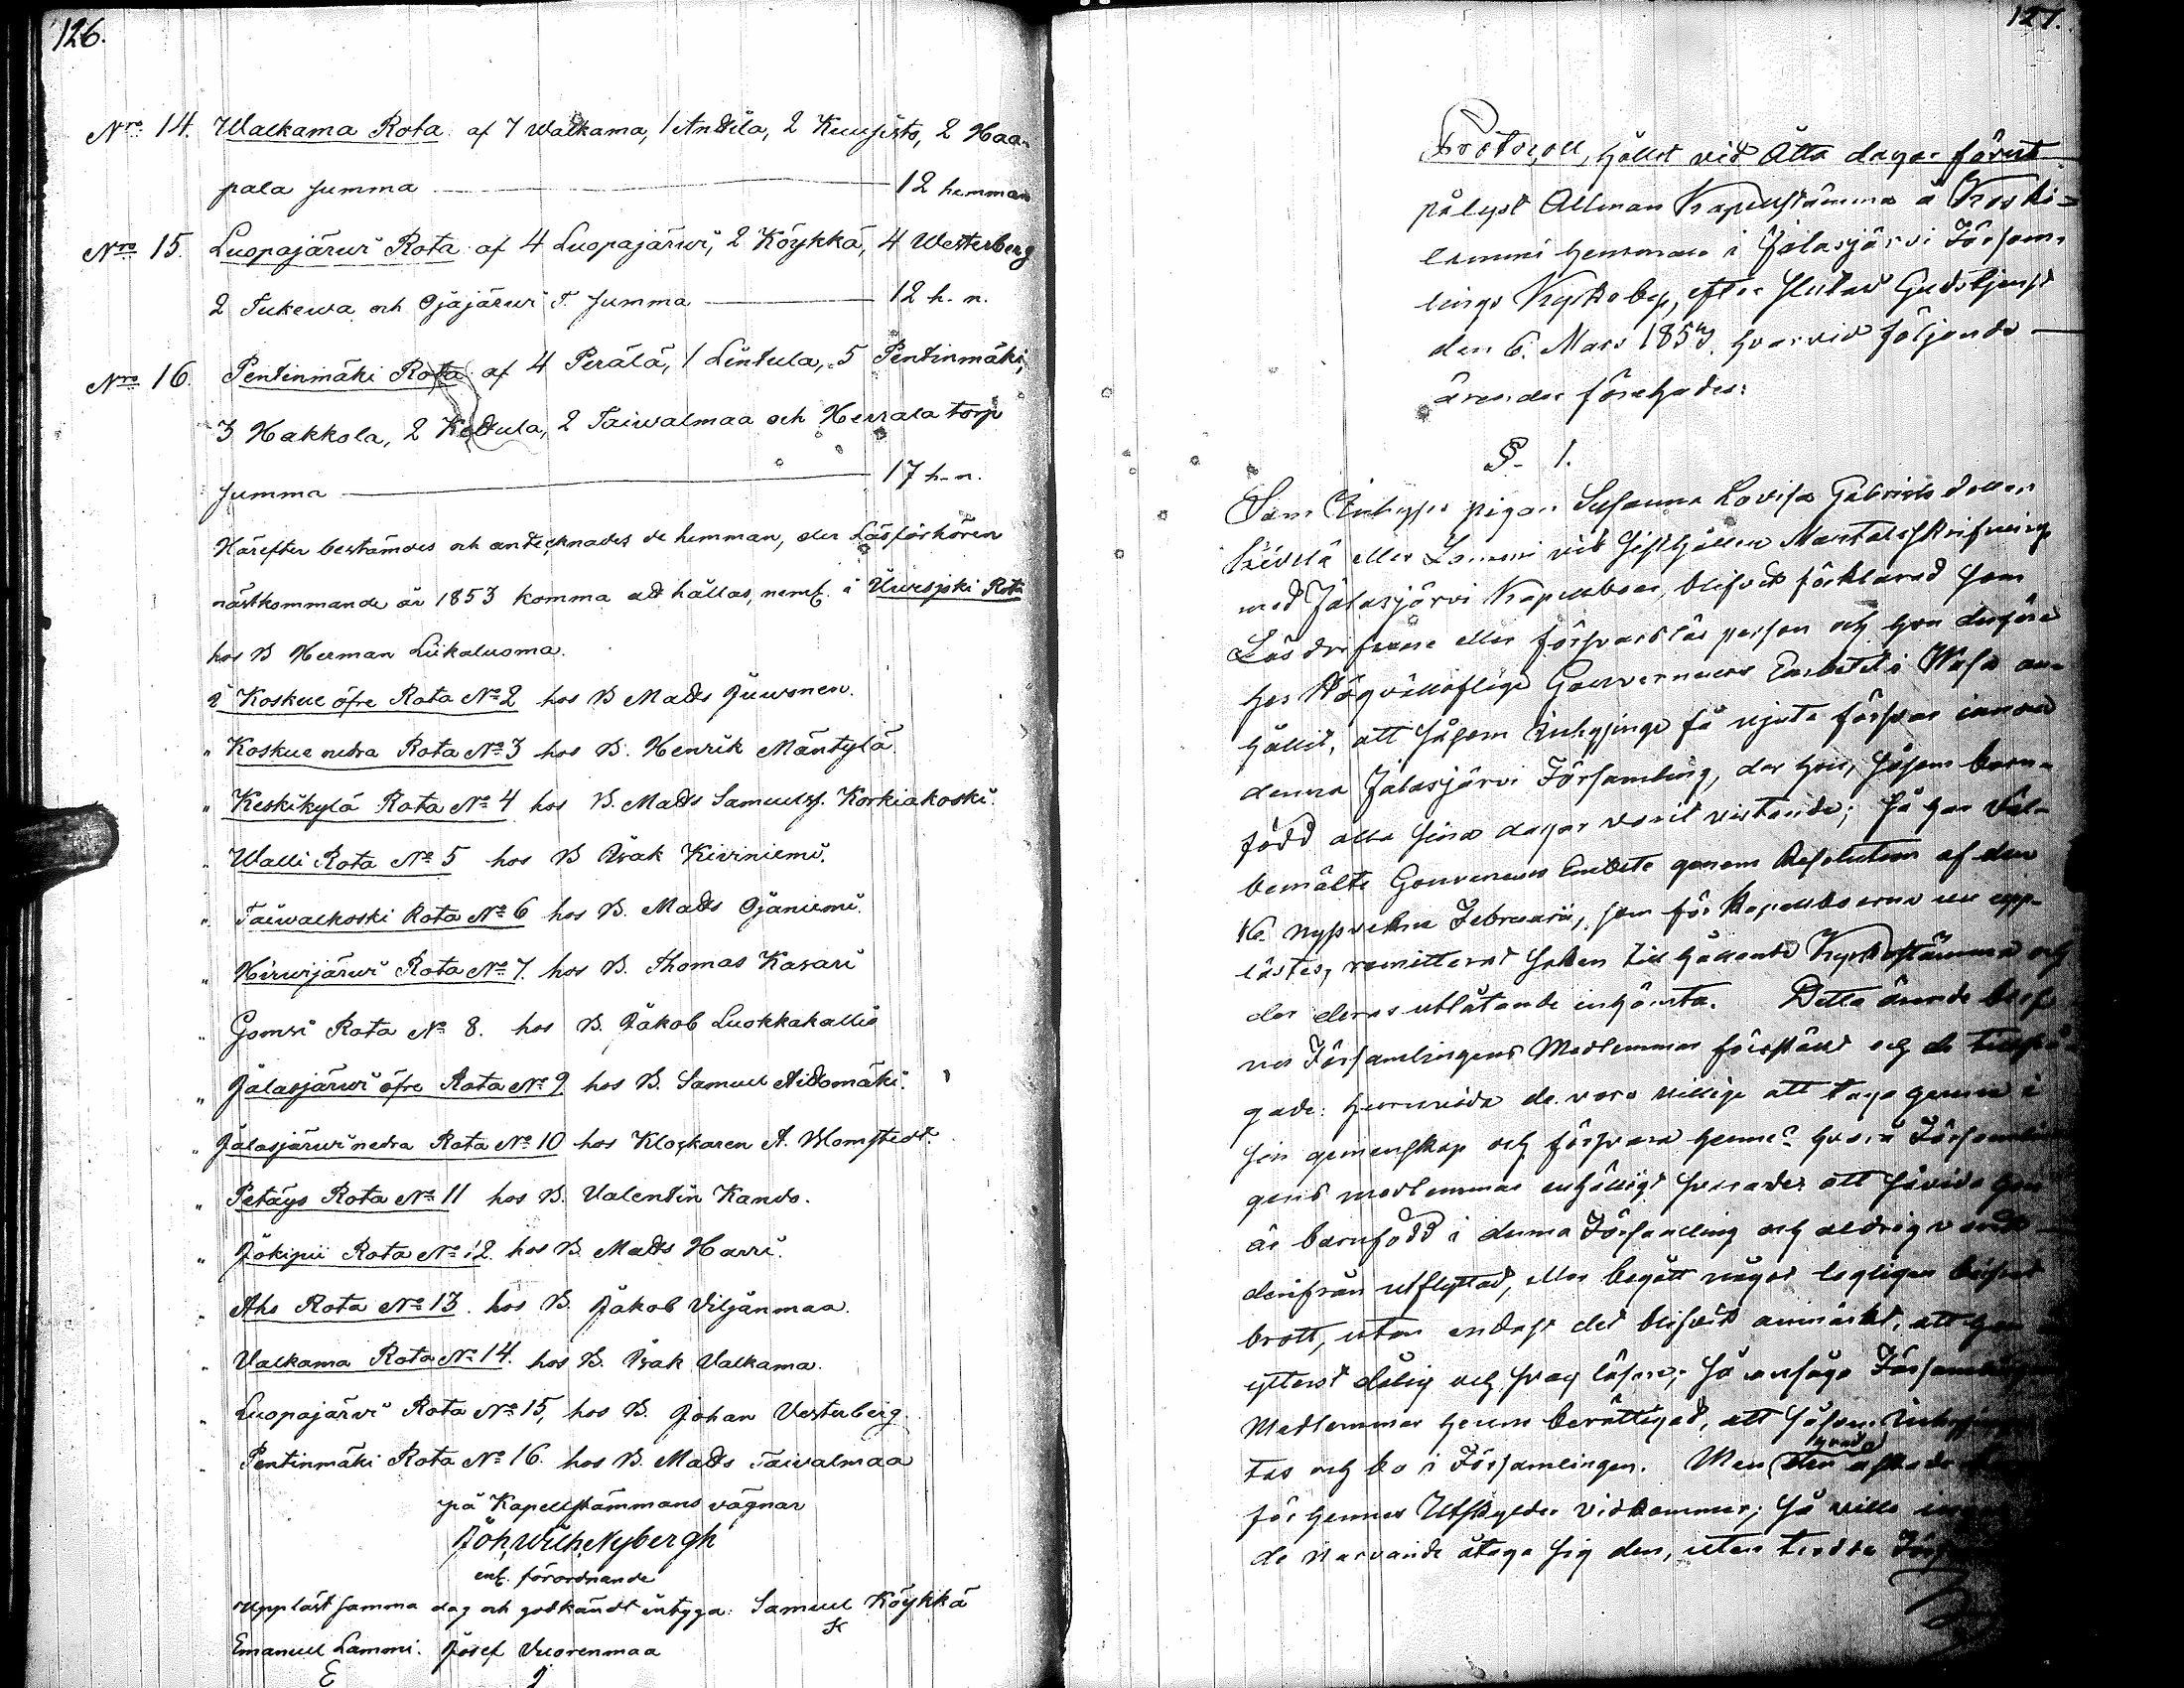 126.
Nro 14. Walkama Rota af 7 Walkama, 1 Anttila, 2 Kuusisto, 2 Haa-
pala summa 12 hemman
Nro 15. Luopajärwi Rota af 4 Luopajärwi, 2 Köykkä, 4 Westerberg
2 Tukewa och Ojajärwi T. summa 12 h-n.
Nro 16. Pentinmäki Rota af 4 Perälä, 1 Lintula, 5 Pentinmäki,
3 Hakkola, 2 Kottula, 2 Taiwalmaa och Herrala torp
summa 17 h-n.
Härefter bestämdes och antecknades de hemman, der Läsförhören
nästkommande år 1853 komma att hållas, neml. i Ilwesjoki Rota
hos B Herman Liikaluoma.
i Koskue öfre Rota No 2 hos B Matts Juwonen.
" Koskue nedra Rota No 3 hos B. Henrik Mäntylä.
" Keskikylä Rota No 4 hos B. Matts Samuelsf. Korkiakoski.
" Walli Rota No 5 hos B Isak Kiviniemi.
" Taiwalkoski Rota No 6 hos B. Matts Ojaniemi.
" Hirwijärwi Rota No 7. hos B. Thomas Kasari
" Gomsi Rota No 8. hos B. Jakob Luokkakallio
" Jalasjärwi öfre Rota No 9 hos B. Samuel Aittomäki.
" Jalasjärwi nedra Rota No 10 hos Klockaren A. Blomstedt.
" Petäys Rota No 11 hos B. Valentin Kando.
" Jokipii Rota No 12. hos B. Matts Harri.
" Aho Rota No 13. hos B. Jakob Viljanmaa.
" Valkama Rota No 14. hos B. Isak Valkama.
" Luopajärvi Rota No 15, hos B. Johan Vesterberg.
" Pentinmäki Rota No 16. hos B. Matts Taivalmaa
på Kapellstämmans vägnar
Joh. Wilh. Nybergh
enl. förordnande
Uppläst samma dag och godkändt intyga: Samuel Köykkä
K
Emanuel Lammi. Josef Vuorenmaa
E J
127.
Protocoll, hållet vid Åtta dagar förut
pålyst Allman Kapellstämma å Koski-
lammi hemman i Jalasjärvi Försam-
lings Kyrkoby, efter slutad Gudstjenst
den 6. Mars 1853. hvarvid följande
ärender förehades:
§. 1.
Som Inhyses pigan Susanna Lovisa Gabriels dotter
eller Lammi vid sisthållen Mantalsskrifning
med Jalasjärvi Kapellboer, blifvit förklarad som
Lösdrifvare eller försvarslös person och hon derföre
hos Högvällofliga Gouverneurs Embetet i Wasa an-
hållit, att såsom Inhysinge få njuta försvar innom
denna Jalasjärvi Församling, der hon, såsom barn-
född alla sina dagar varit vistande; så har Väl-
bemälte Gouverneurs Embete genom Resolution af den
16. nyssvekne Februarii, som för Kapellboerne nu upp-
lästes, remitterat saken till hållande Kyrkostämma och
der deras utlåtande inhämta. Detta ärende blef
nu Församlingens Medlemmar föreställt och de
gade: huruvida de vore villige att taga henne i
sin gemenskap och försvara henne? hvarå Församlin
gens medlemmar enhälligt svarades att såvida hon
är barnfödd i denna Församling och aldrig varit
derifrån utflyttad, eller begått något lagligen bevisat
brott, utan endast det blifvit anmärkt, att hon
ytterst dålig och svag läsare; så ansågo Församlingens
Medlemmar henne berättigad, att såsom Inhysing
tas och bo i Församlingen. Men hvad
för hennes Utskylder vidkommer; så ville ingen
de närvarande åtaga sig den, utan trodde